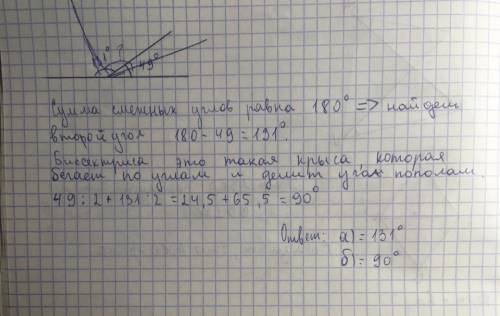 1° 2
49°
Сумма смежных углов равна 180° => найдем
второй угол 180 - 49 = 131°.
Биссектриса это такая крыса, которая
бегает по углам и делит угол пополам.
49 : 2 + 131 : 2 = 24,5 + 65,5 = 90°
Ответ: а) = 131°
б) = 90°